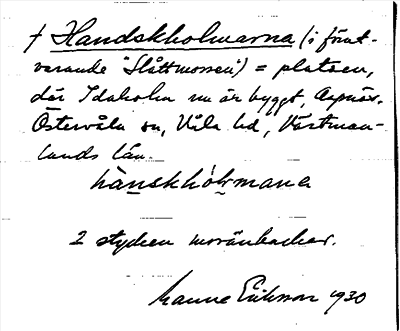 † Handskholmarna (i föret-
varande "Slåttmossen") = platsen,
där Idaholm nu är byggt, Aspnäs,
Östervåla sn, Våla hd, Västman-
lands län.
hànskhòlmana
2 stycken moränbackar.
Manne Eriksson 1930